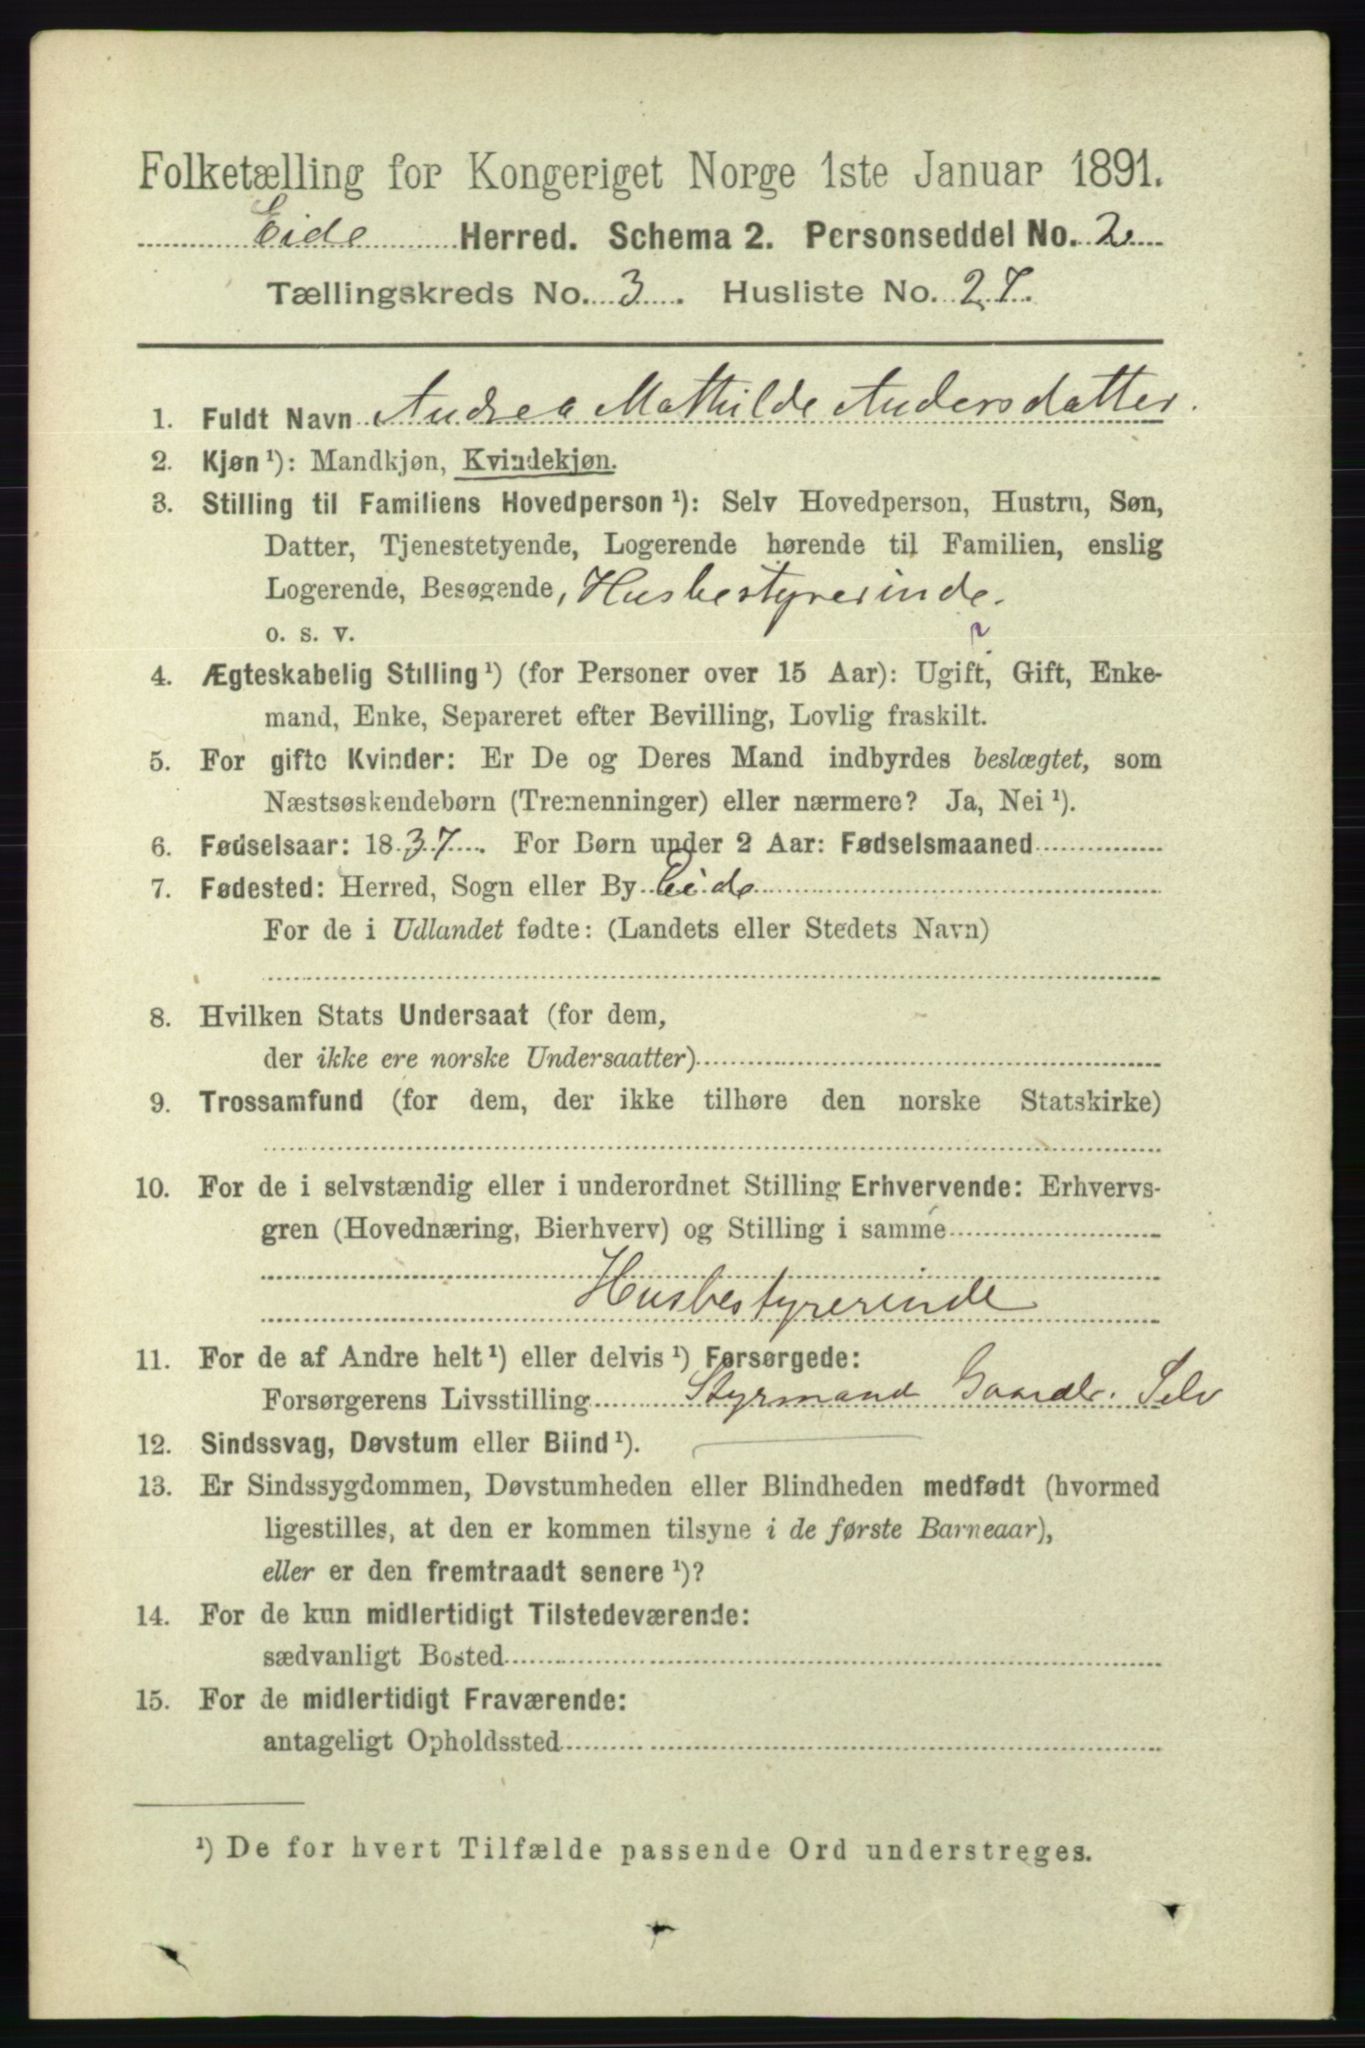 Folketælling for Kongeriget Norge 1ste Januar 1891.
Eide Herred. Schema 2. Personseddel No. 2
Tællingskreds No. 3. Husliste No. 27.
1. Fuldt Navn Andrea Mathilde Andersdatter.
2. Kjøn ¹): Mandkjøn, Kvindekjøn.
3. Stilling til Familiens Hovedperson ¹): Selv Hovedperson, Hustru, Søn,
Datter, Tjenestetyende, Logerende hørende til Familien, enslig
Logerende, Besøgende, Husbestyrerinde.
o. s. v.
?
4. Ægteskabelig Stilling ¹) (for Personer over 15 Aar): Ugift, Gift, Enke-
mand, Enke, Separeret efter Bevilling, Lovlig fraskilt.
5. For gifte Kvinder: Er De og Deres Mand indbyrdes beslægtet, som
Næstsøskendebørn (Tremenninger) eller nærmere? Ja, Nei ¹).
6. Fødselsaar: 1837. For Børn under 2 Aar: Fødselsmaaned
7. Fødested: Herred, Sogn eller By Eide
For de i Udlandet fødte: (Landets eller Stedets Navn)
8. Hvilken Stats Undersaat (for dem,
der ikke ere norske Undersaatter)
9. Trossamfund (for dem, der ikke tilhøre den norske Statskirke)
10. For de i selvstændig eller i underordnet Stilling Erhvervende: Erhvervs-
gren (Hovednæring, Bierhverv) og Stilling i samme
Husbestyrerinde
11. For de af Andre helt ¹) eller delvis ¹) Forsørgede:
Forsørgerens Livsstilling Styrmand Gaardb. Selv
12. Sindssvag, Døvstum eller Blind ¹).
13. Er Sindssygdommen, Døvstumheden eller Blindheden medfødt (hvormed
ligestilles, at den er kommen tilsyne i de første Barneaar),
eller er den fremtraadt senere ¹)?
14. For de kun midlertidigt Tilstedeværende:
sædvanligt Bosted
15. For de midlertidigt Fraværende:
antageligt Opholdssted
¹) De for hvert Tilfælde passende Ord understreges.